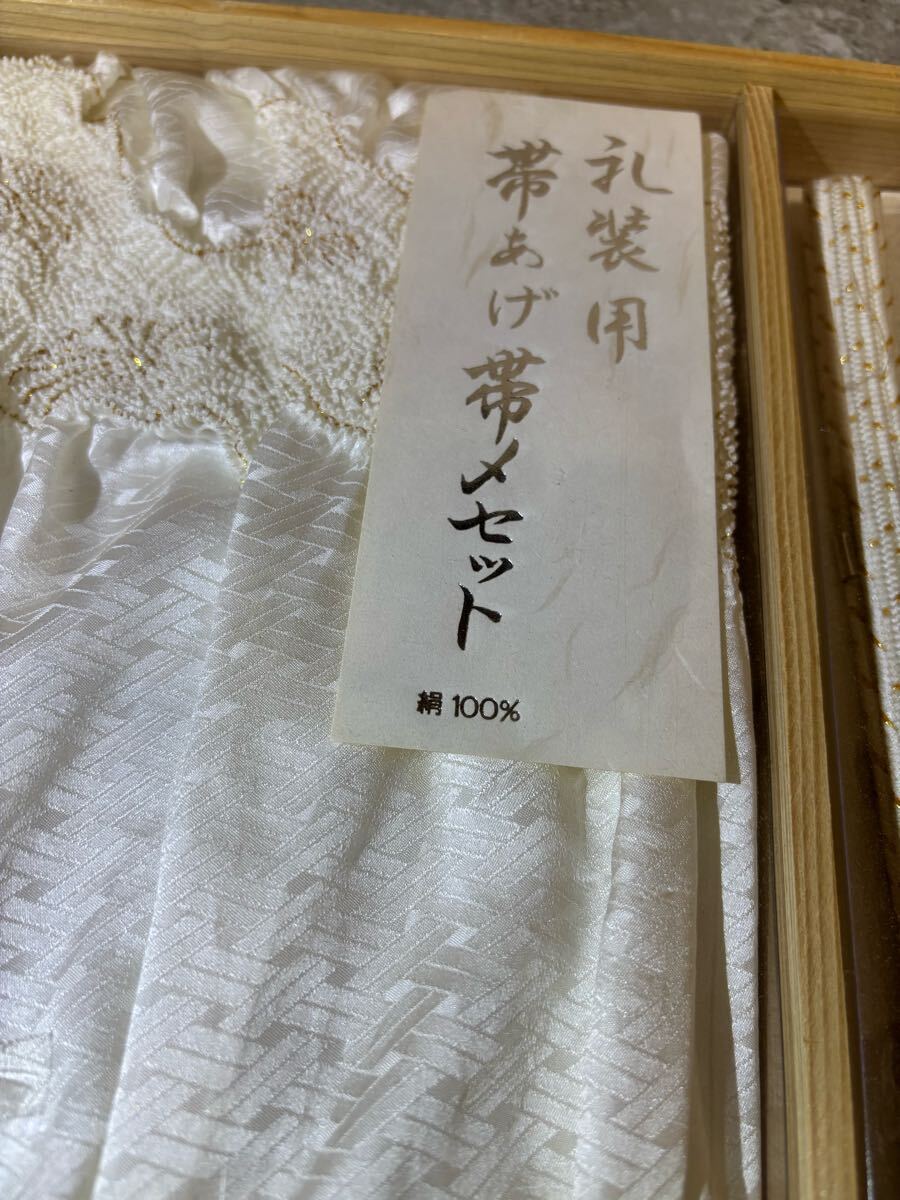 礼装用
帯あげ帯〆セット
絹100%